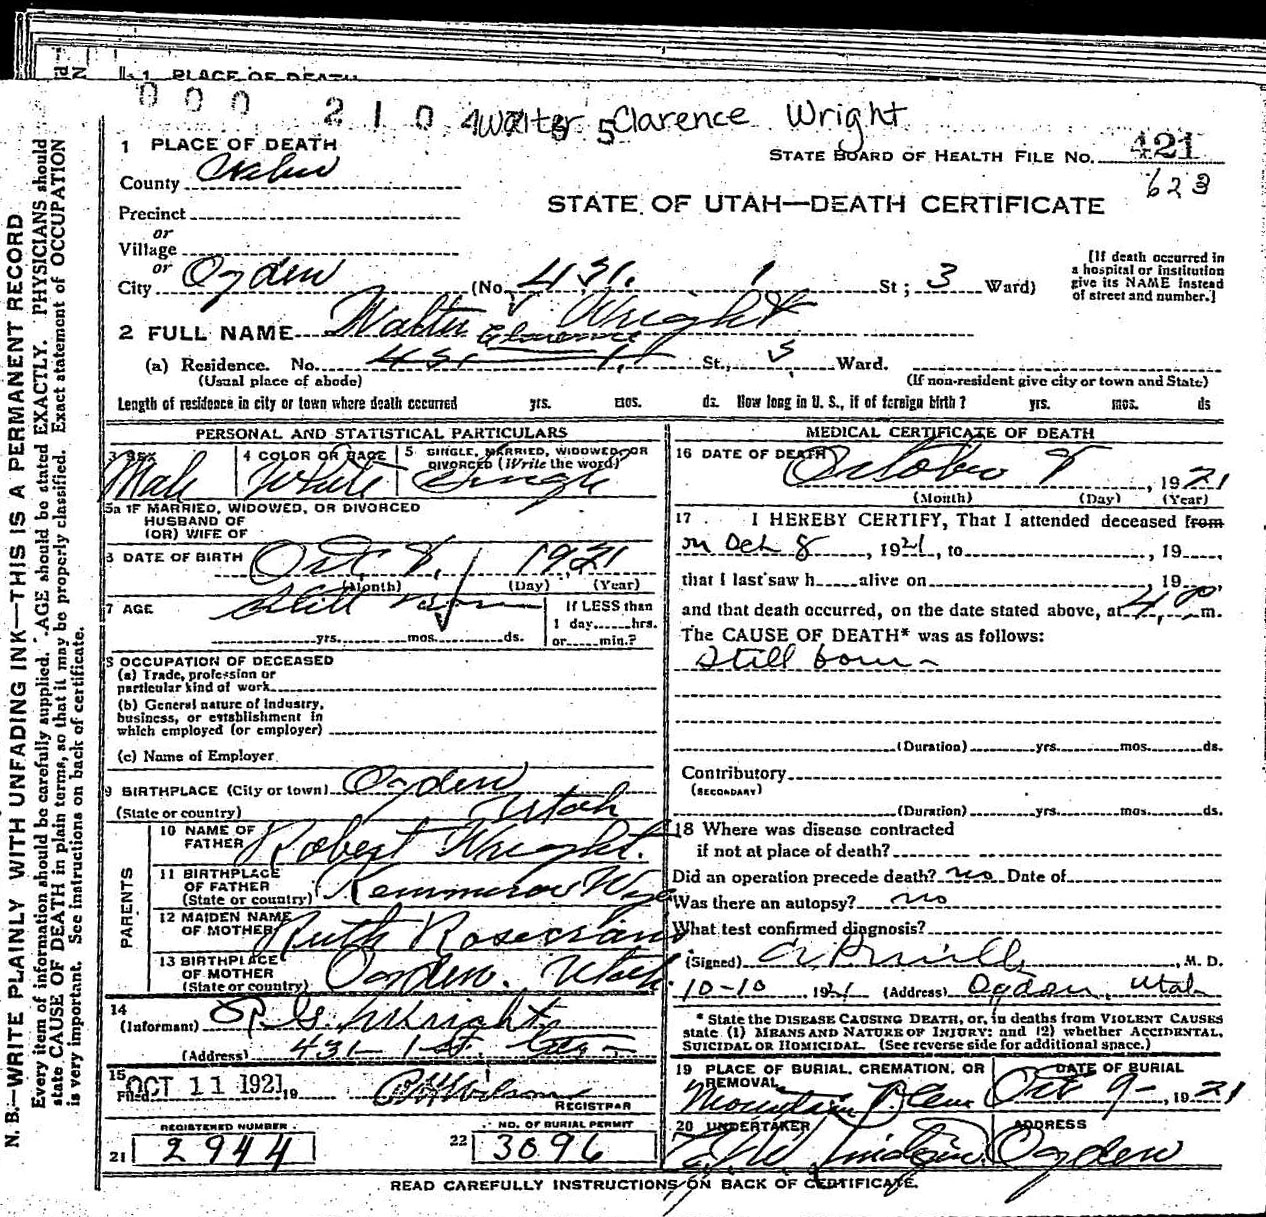 1 PLACE OF DEATH
0 0 0 2 1 0 4
Walter Clarence Wright
1 PLACE OF DEATH
STATE BOARD OF HEALTH FILE NO. 421
623
County Weber
STATE OF UTAH—DEATH CERTIFICATE
Precinct
or
Village
or
City Ogden (No. 431. 1 St; 3 Ward)
[If death occurred in
a hospital or institution
give its NAME instead
of street and number.]
2 FULL NAME Walter Clarence Wright
(a) Residence. No. 431 1. St., 3 Ward.
(Usual place of abode) (If non-resident give city or town and State)
Length of residence in city or town where death occurred yrs. mos. ds. How long in U. S., if of foreign birth? yrs. mos. ds
PERSONAL AND STATISTICAL PARTICULARS
3 SEX Male
4 COLOR OR RACE White
5 SINGLE, MARRIED, WIDOWED, OR
DIVORCED (Write the word) Single
5a IF MARRIED, WIDOWED, OR DIVORCED
HUSBAND OF
(OR) WIFE OF
6 DATE OF BIRTH Oct 8, 1921
(Month) (Day) (Year)
7 AGE Still born
yrs. mos. ds.
If LESS than
1 day hrs.
or min.?
8 OCCUPATION OF DECEASED
(a) Trade, profession or
particular kind of work
(b) General nature of industry,
business, or establishment in
which employed (or employer)
(c) Name of Employer
9 BIRTHPLACE (City or town) Ogden
(State or country) Utah
PARENTS
10 NAME OF
FATHER Robert Wright.
11 BIRTHPLACE
OF FATHER
(State or country) Kemmerer Wyo
12 MAIDEN NAME
OF MOTHER Ruth Rosecrans
13 BIRTHPLACE
OF MOTHER
(State or country) Ogden. Utah.
14
(Informant) R. G. Wright
(Address) 431 - 1 st.
15
Filed OCT 11 1921 19
Wilson
REGISTRAR
REGISTERED NUMBER
21 2944
NO. OF BURIAL PERMIT
22 3096
MEDICAL CERTIFICATE OF DEATH
16 DATE OF DEATH October 8, 1921
(Month) (Day) (Year)
17 I HEREBY CERTIFY, That I attended deceased from
on Oct 8, 1921, to , 19
that I last saw h alive on , 19
and that death occurred, on the date stated above, at 4 P m.
The CAUSE OF DEATH* was as follows:
Still born
(Duration) yrs. mos. ds.
Contributory
(SECONDARY)
(Duration) yrs. mos. ds.
18 Where was disease contracted
if not at place of death?
Did an operation precede death? no Date of
Was there an autopsy? no
What test confirmed diagnosis?
(Signed) , M. D.
10-10 1921 (Address) Ogden, Utah
* State the DISEASE CAUSING DEATH, or, in deaths from VIOLENT CAUSES
state (1) MEANS AND NATURE OF INJURY; and (2) whether ACCIDENTAL,
SUICIDAL OR HOMICIDAL. (See reverse side for additional space.)
19 PLACE OF BURIAL, CREMATION, OR
REMOVAL Mountain View
DATE OF BURIAL
Oct 9-, 1921
20 UNDERTAKER Lindquist
ADDRESS Ogden
READ CAREFULLY INSTRUCTIONS ON BACK OF CERTIFICATE.
N. B.—WRITE PLAINLY WITH UNFADING INK—THIS IS A PERMANENT RECORD
Every item of information should be carefully supplied. AGE should be stated EXACTLY. PHYSICIANS should
state CAUSE OF DEATH in plain terms, so that it may be properly classified. Exact statement of OCCUPATION
is very important. See instructions on back of certificate.